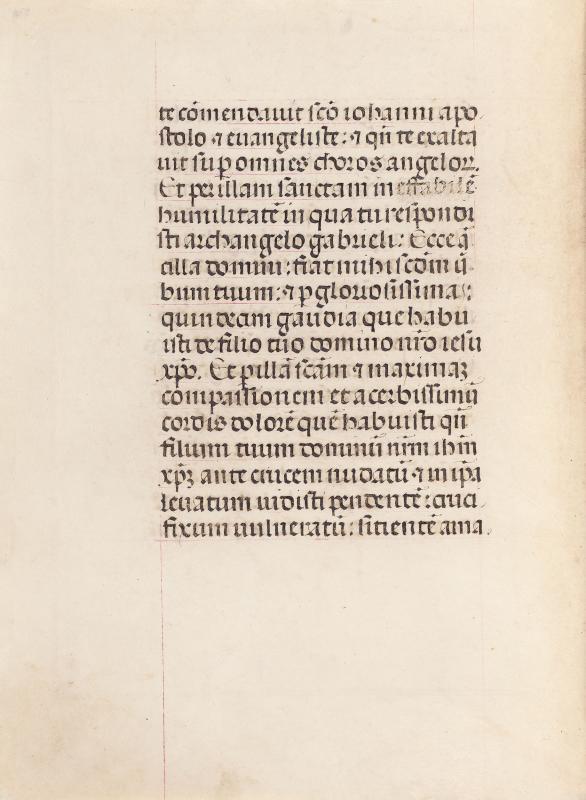 te cōmendauit scō iohanni apo
stolo ⁊ euangeliste: ⁊ qn̄ te exalta
uit sup omnes choros angeloꝝ.
Et per illam sanctam ineffabilē
humilitatē in qua tu respondi
sti archangelo gabrieli: Ecce ā
cilla domini: fiat mihi scdm ū
bum tuum: ⁊ ꝑ gloriosissima:
quindecim gaudia que habu
isti de filio tuo domino nr̄o iesu
xp̄o. Et ꝑ illā scām ⁊ maximaꝫ
compassionem et acerbissimū
cordis dolorē quē habuisti qn̄
filium tuum dominū nr̄m ihm̄
xp̄ꝫ ante crucem nudatū ⁊ in ip̄a
leuatum uidisti pendentē: cruci
fixum uulneratū: sitientē ama